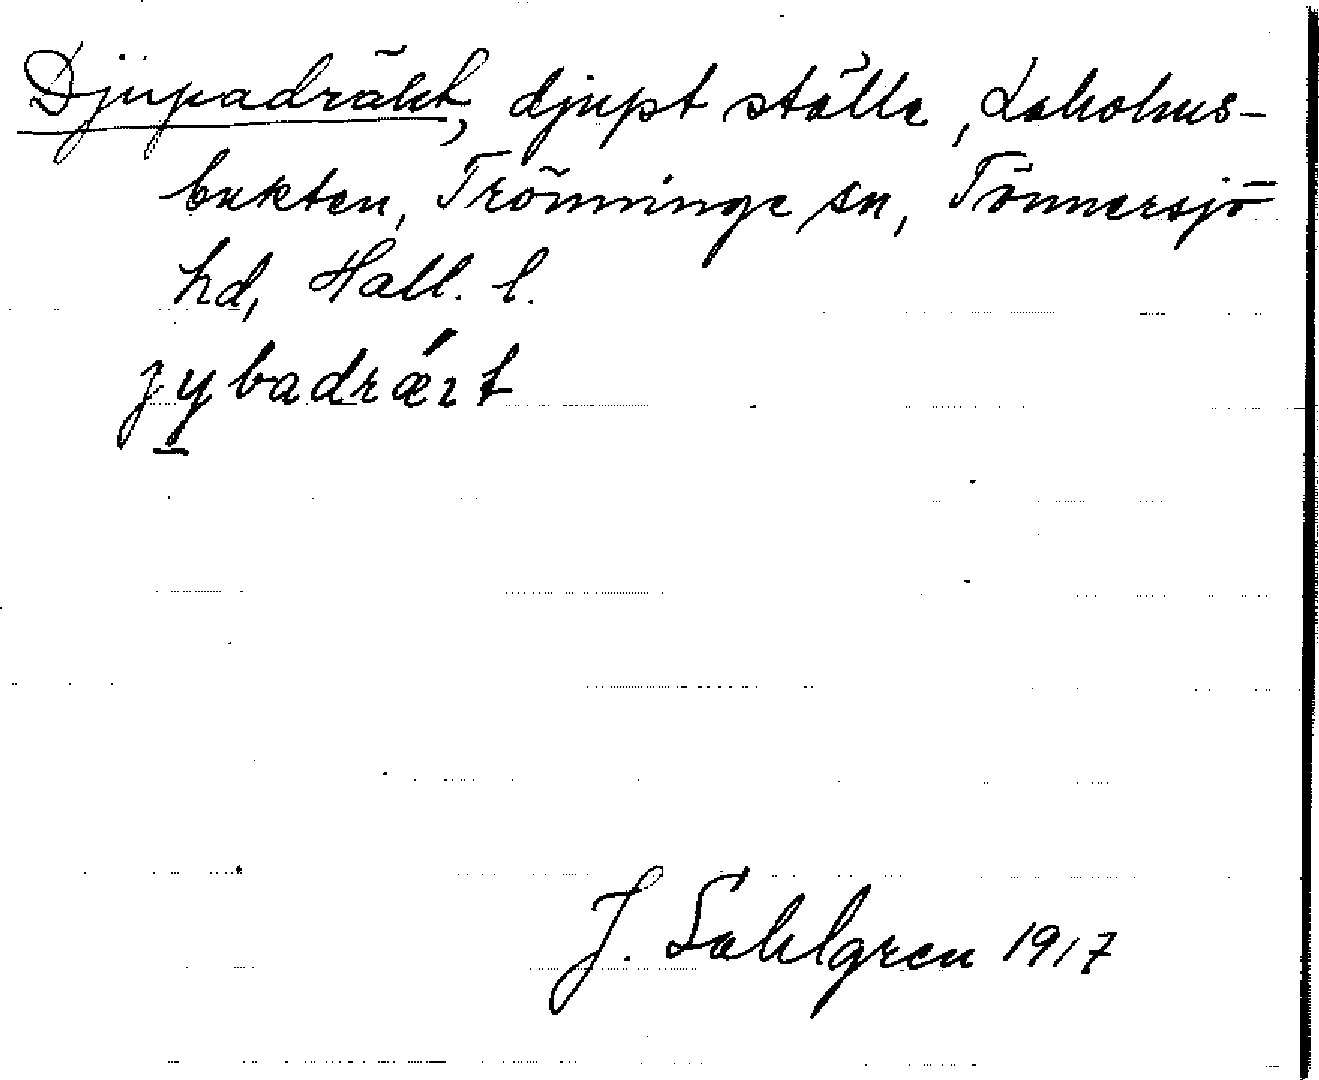 Djupadräkt, djupt ställe, Laholms-
bukten, Trönninge sn, Tönnersjö
hd, Hall. l.
J. Sahlgren 1917